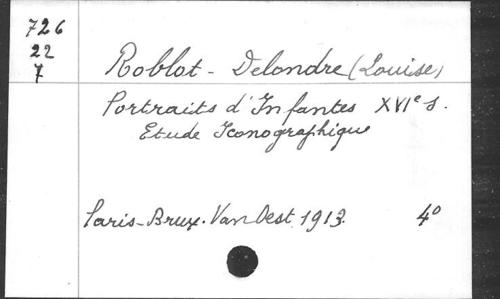 726
22
7
Roblot - Delondre (Louise)
Portraits d'Infantes XVIe s.
Etude Iconographique
Paris - Brux. Van Oest. 1913. 4°